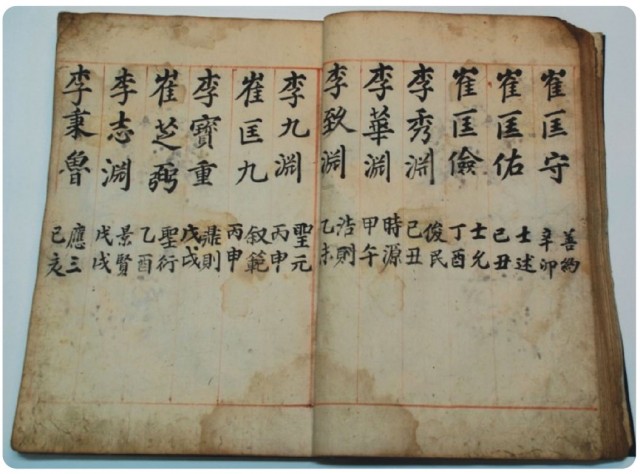 崔匡守
善約
辛卯
崔匡佑
士述
己丑
崔匡儉
士允
丁酉
李秀淵
俊民
己丑
李華淵
時源
甲午
李致淵
浩則
乙未
李九淵
聖元
丙申
崔匡九
叙範
丙申
李寶重
鼎則
戊戌
崔芝弼
聖行
乙酉
李志淵
景賢
戊戌
李秉魯
應三
己亥